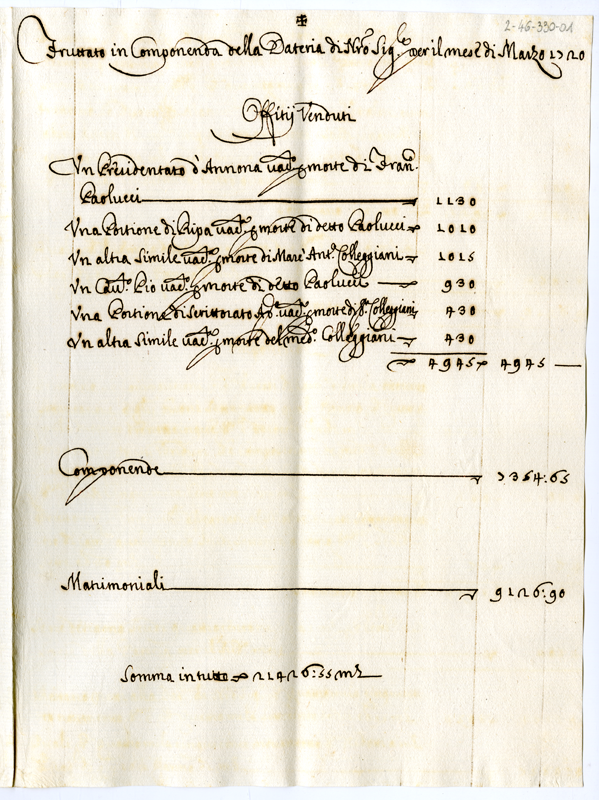 2-46-330-01
Fruttato in Componenda della Dateria di Nro Sig.re per il mese di Marzo 1720
Offitij Venduti
Un Presidentato d'Annona vac.o per morte di Fran.
Paolucci 1130
Una Portione di Ripa vac.a per morte di detto Paolucci 1010
Un altra simile vac.a per morte di Marc' Ant.o Colleggiani 1015
Un Cav.to Pio vac.o per morte di detto Paolucci 930
Una Portione di Scrittorato Ap.o vac.a per morte di Colleggiani 430
Un altra simile vac.a per morte del med.o Colleggiani 430
4945 4945
Componende 7354:65
Matrimoniali 9126:90
Somma in tutto 21426:55 m.ta